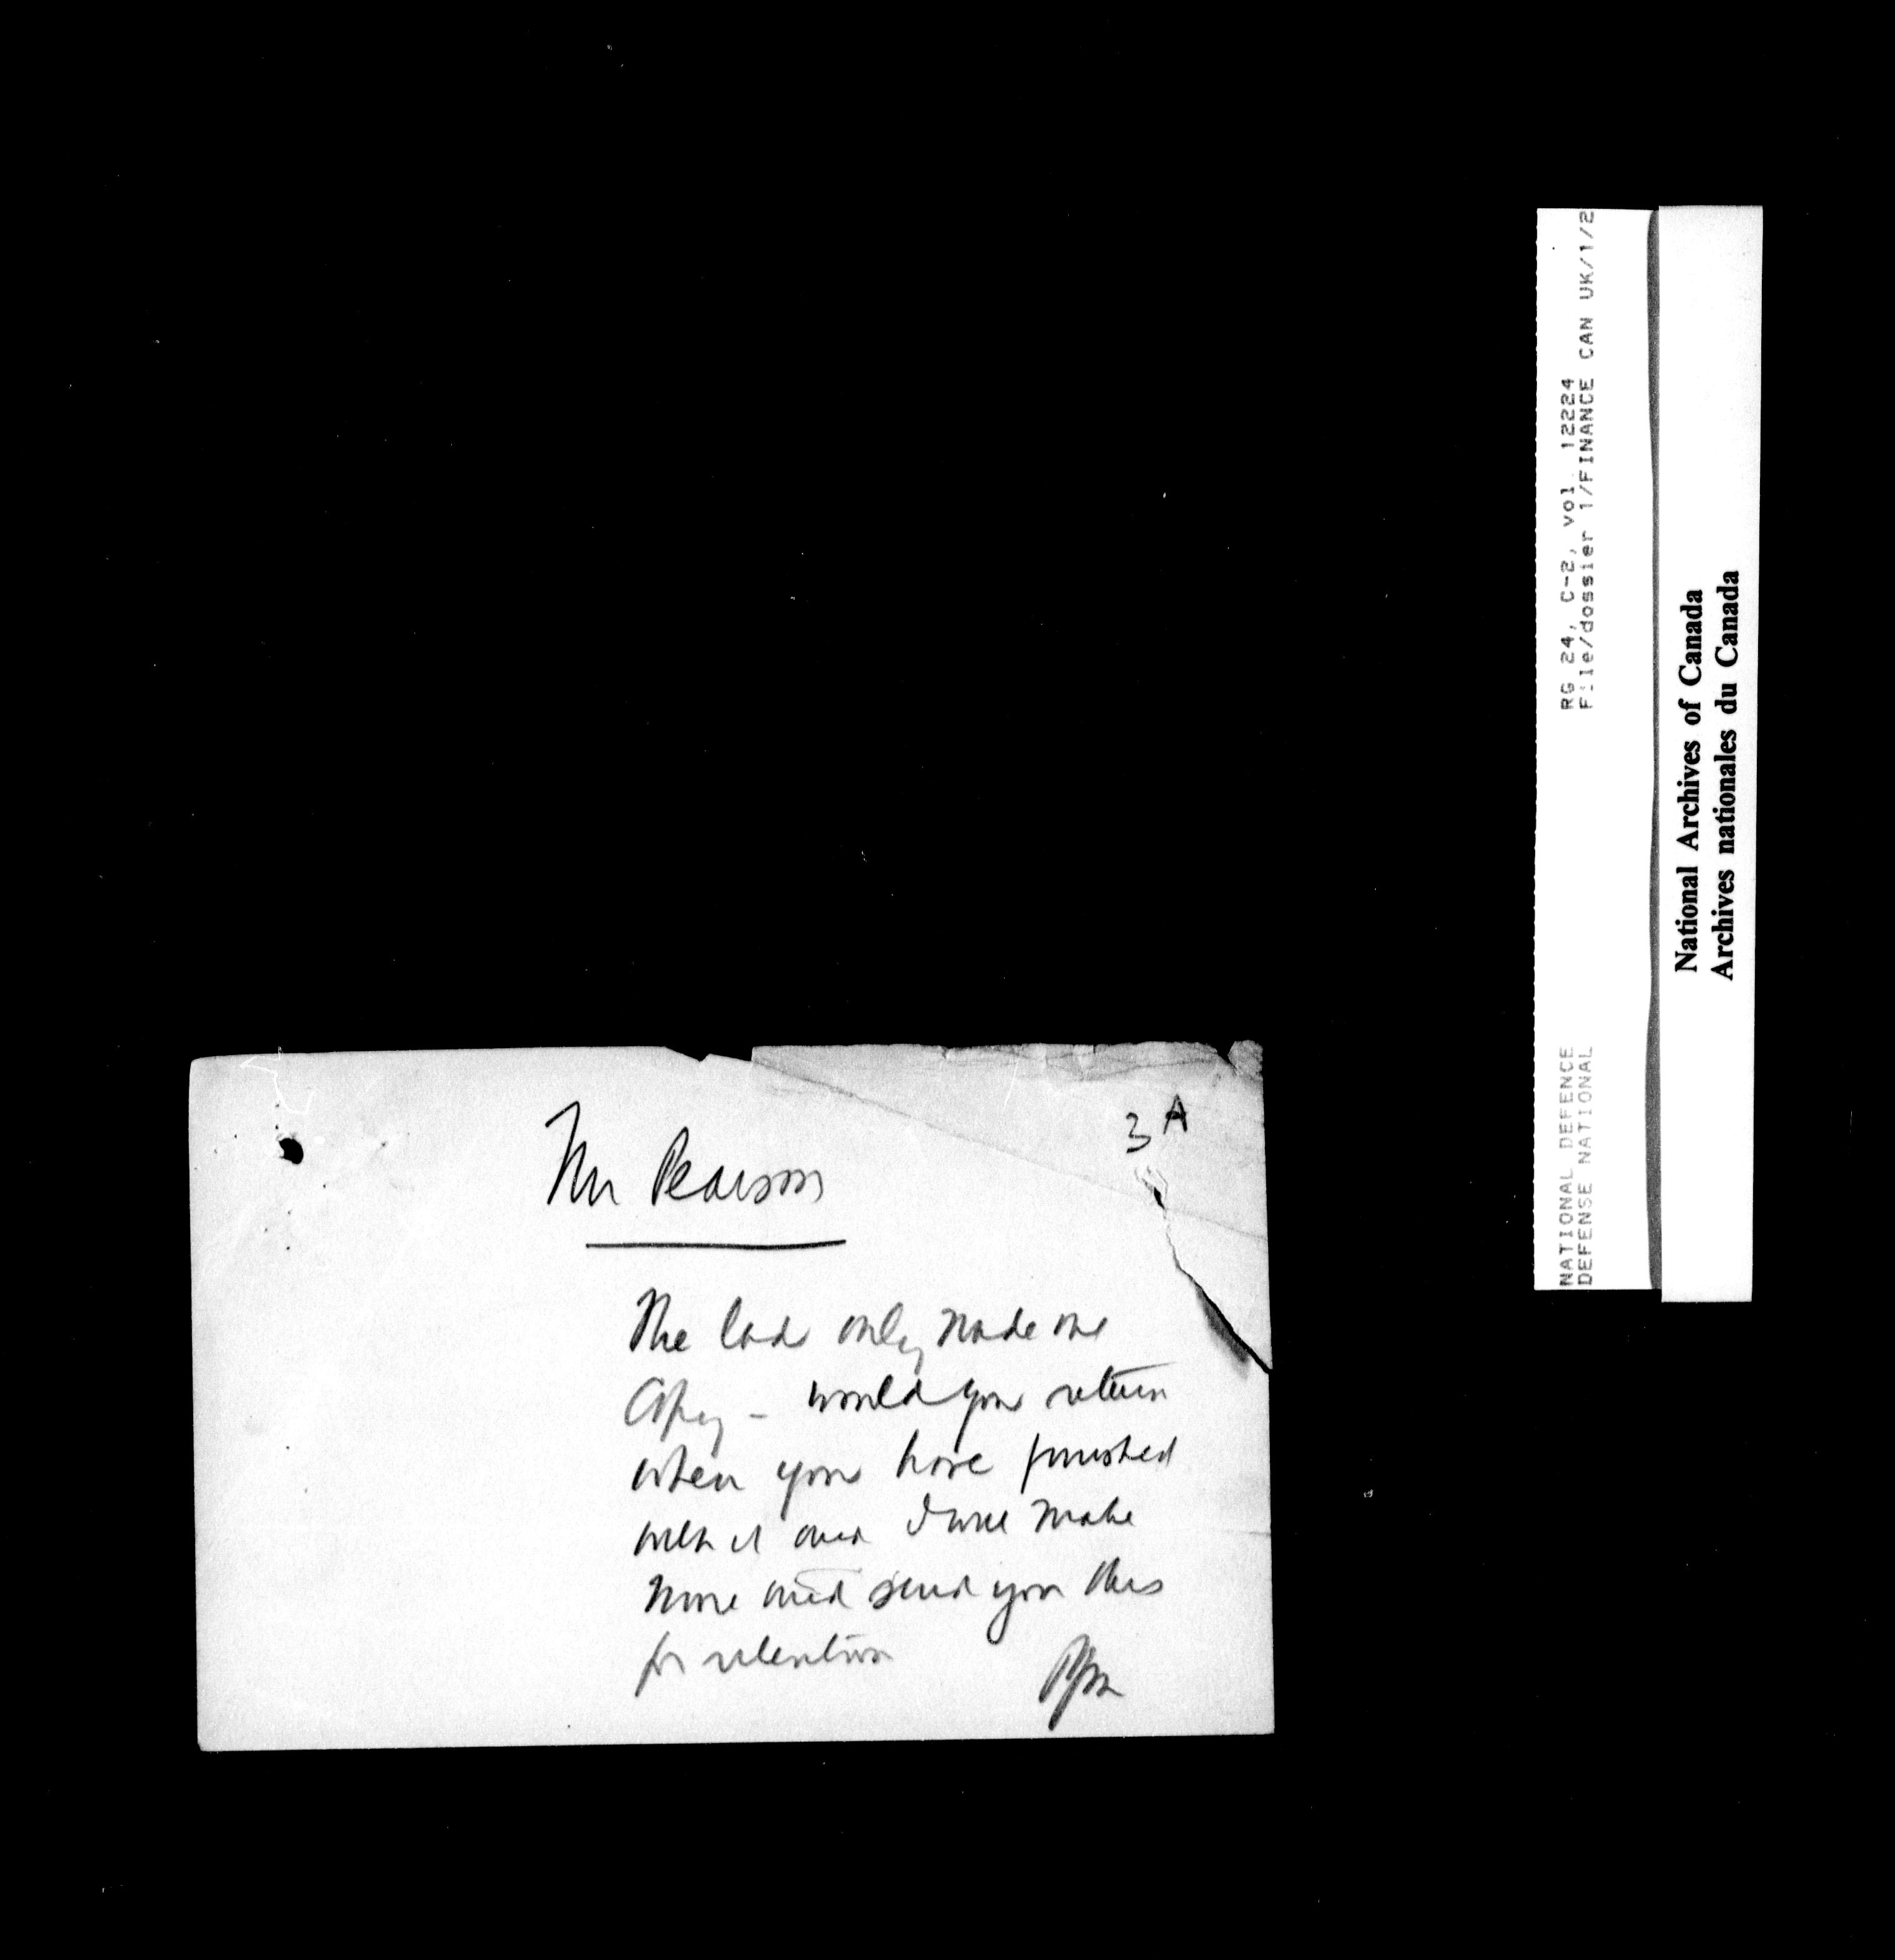 3A
Mr Pearson
The lads only made one
copy - would you return
when you have finished
with it and I will make
more and send you this
for retention
NATIONAL DEFENCE
DEFENSE NATIONAL
RG 24, C-2, vol. 12224
File/dossier 1/FINANCE CAN UK/1/2
National Archives of Canada
Archives nationales du Canada